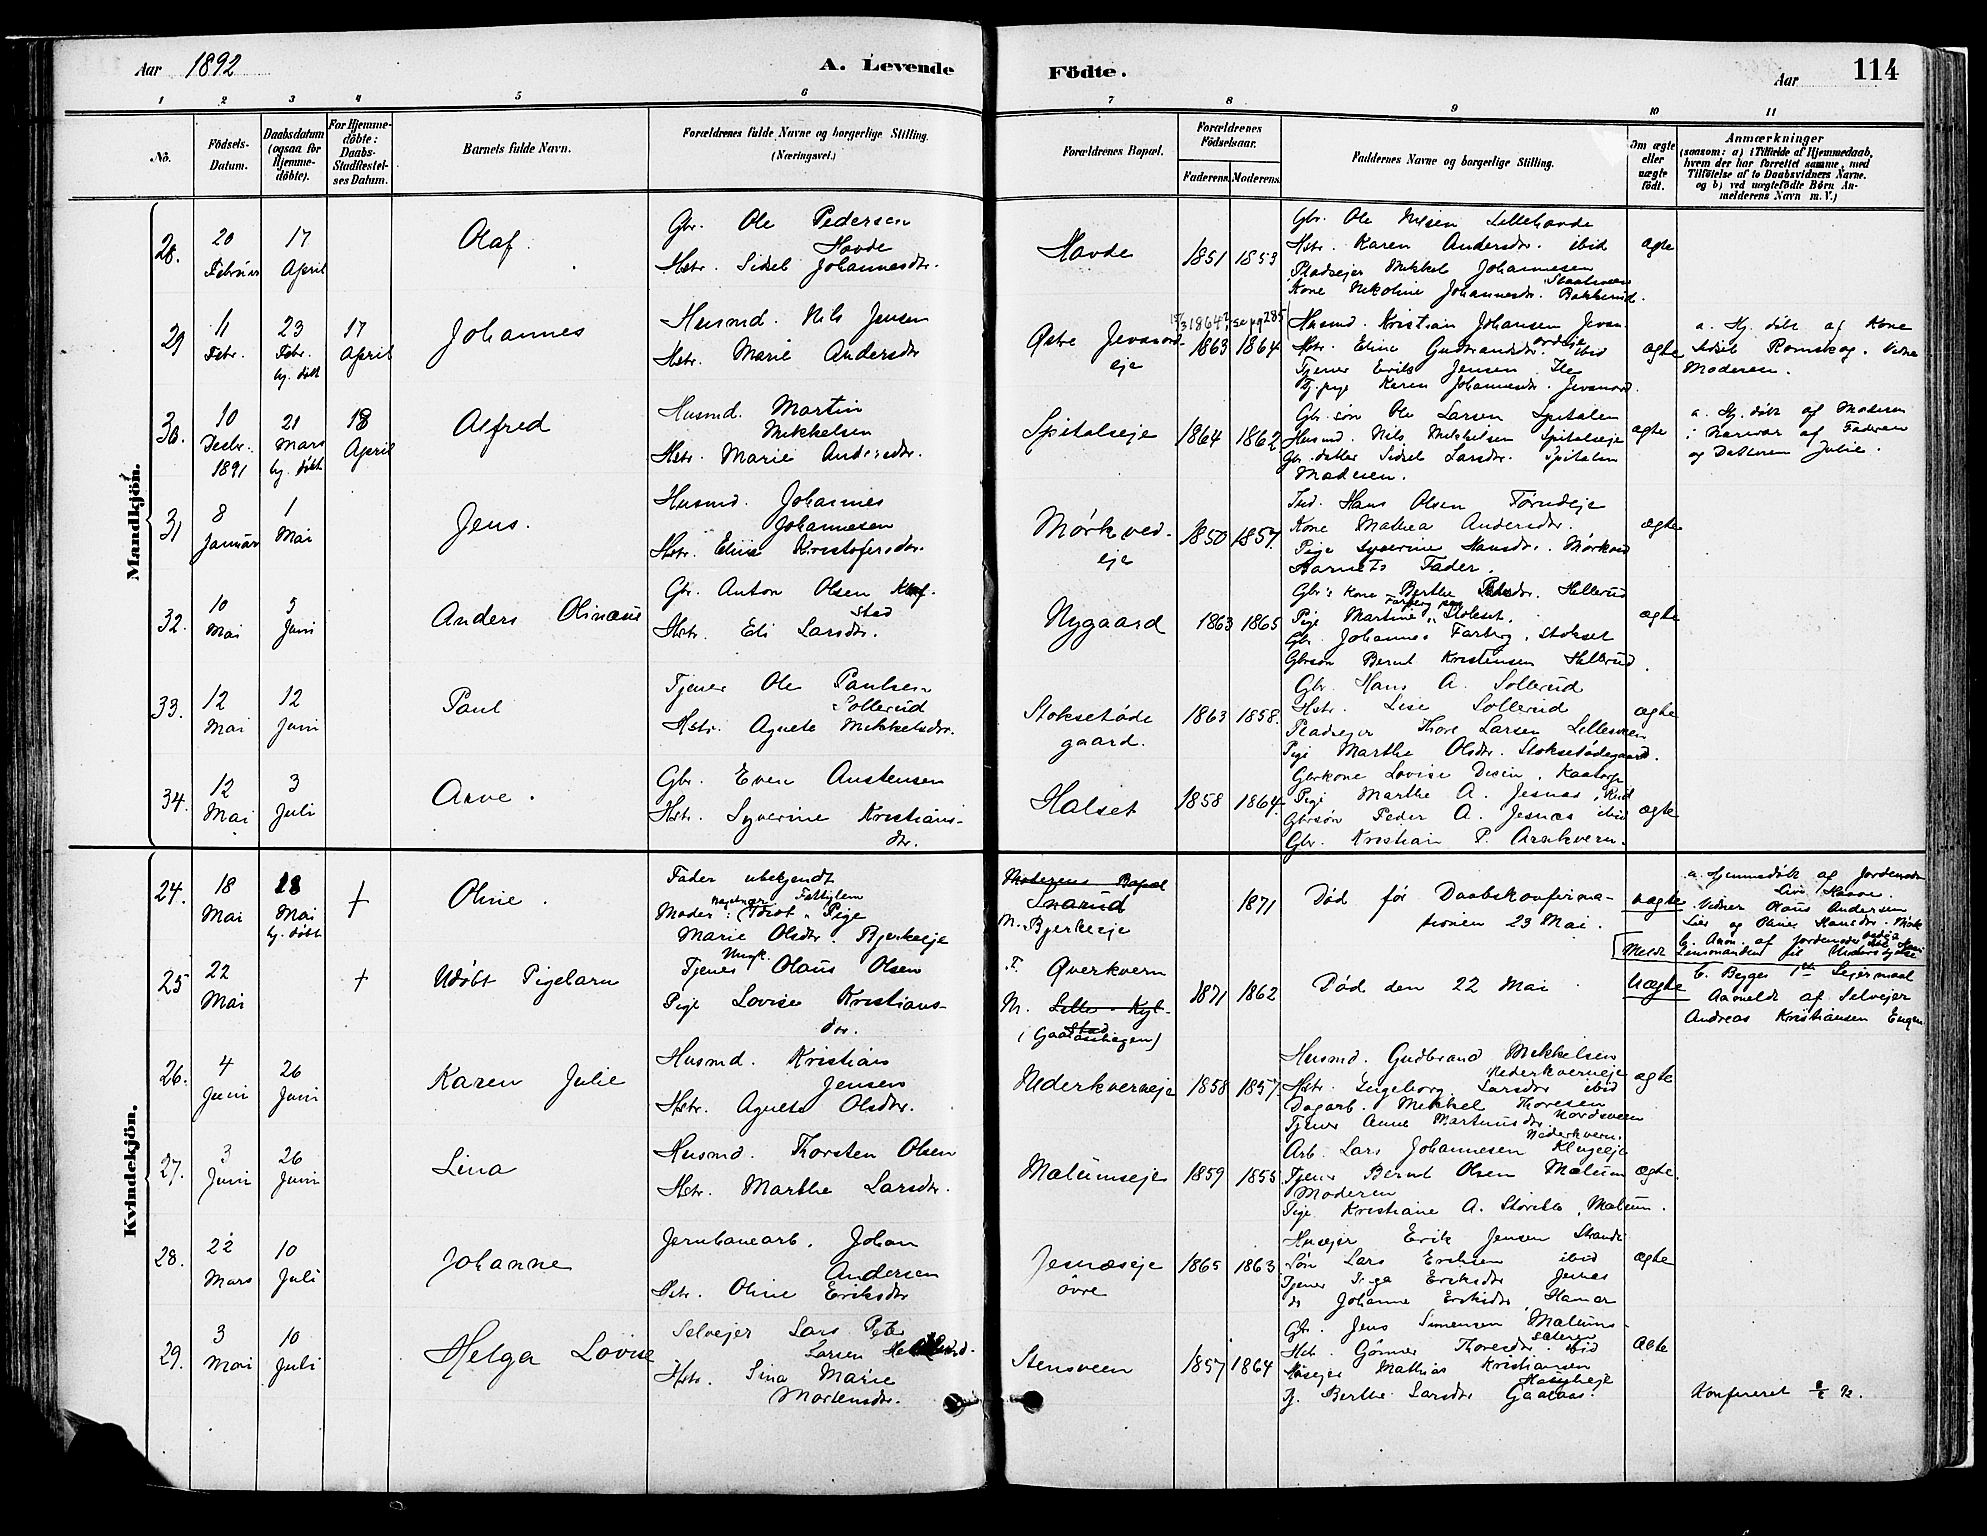 Aar 1892
A. Levende
Födte.
Aar
114
1 2 3 4 5 6 7 8 9 10 11
No.
Födsels-
Datum.
Daabsdatum
(ogsaa for
Hjemme-
döbte).
For Hjemme-
döbte:
Daabs-
Stadfæstel-
ses Datum.
Barnets fulde Navn.
Forældrenes fulde Navne og borgerlige Stilling.
(Næringsvei.)
Forældrenes Bopæl.
Forældrenes
Födselsaar.
Faderens. Moderens.
Faddernes Navne og borgerlige Stilling.
Om ægte
eller
uægte
födt.
Anmærkninger
(saasom: a) i Tilfælde af Hjemmedaab,
hvem der har forrettet samme, med
Tilföielse af to Daabsvidners Navne.
og b) ved uægtefödte Börn An-
melderens Navn m. V.)
Mandkjön.
28.
20
Februar
17
April
Olaf.
Gbr. Ole Pedersen
Hovde
Hstr. Sidsel Johannesdr.
Hovde
1851 1853
Gbr. Ole Nilsen Lillehovde
Hstr. Karen Andersdr. ibid
Pladsejer Mikkel Johannesen
Kone Nikoline Johannesdr. Bakkerud.
ægte
29
11
Febr.
23
Febr.
hj. døbt
17
April
Johannes
Husmd. Nils Jensen
Hstr. Marie Andersdr
Østre Jevanord
eje
1864? se pg 285
1863 1864
Husmd. Kristian Johansen Jevan
ordeje
Hstr. Eline Gudbrandsdr. ibid
Tjener Erik Jensen Ile
Tj. pige Karen Johannesdr. Jevanord.
ægte
a. Hj. døbt af Kone
Sidsel Romskog. Vidne
Moderen.
30.
10
Decbr.
1891
21
Mars
hj. døbt
18
April
Alfred
Husmd. Martin
Mikkelsen
Hstr. Marie Andersdr.
Spitalseje
1864 1862
Gbr. søn Ole Larsen Spitalen
Husmd. Nils Mikkelsen Spitalseje
Gbr. datter Sidsel Larsdr. Spitalen
Moderen.
ægte
a. Hj. døbt af Moderen
i Nærvær af Faderen
og Datteren Julie.
31
8
Januar
1
Mai
Jens.
Husmd. Johannes
Johannesen
Hstr. Elise Kristofersdr.
Mørkved-
eje
1850 1857.
Ind. Hans Olsen Tørudeje
Kone Mathea Andersdr.
Pige Syverine Hansdr. Mørkved
Barnets Fader.
ægte
32.
10
Mai
5
Juni
Anders Olinaus
Gbr. Anton Olsen
stad
Hstr. Eli Larsdr.
Nygaard
1863 1865
Gbr's kone Berthe Hellerud
Pige Martine Stokset.
Gbr. Johannes Farberg, Stokset
Gbrsøn Bernt Kristensen Hellerud.
ægte
33.
12
Mai
12
Juni
Paul
Tjener Ole Paulsen
Sollerud
Hstr. Agnete Mikkelsdr.
Stoksetøde
gaard.
1863 1858.
Gbr. Hans A. Sollerud
Hstr. Lise Sollerud
Pladsejer Thore Larsen Lillesveen
Pige Marthe Olsdr. Stoksetødegaard.
ægte
34.
12
Mai
3
Juli
Arve.
Gbr. Even Austensen
Hstr. Syverine Kristians-
dr.
Halset
1858 1864.
Gbrkone Lovise Disen, Kaatorp
Pige Marthe A. Jesnes, ibid
Gbrsøn Peder A. Jesnes ibid
Gbr. Kristian P. Arnkvern.
ægte
Kvindekjön.
24.
18
Mai
18
Mai
hj. døbt
+
Oline.
Fader ubekjendt
Moder: Pige
Marie Olsdr. Bjerkeeje
Moderens Bopæl
Snarud
M. Bjerkeeje
1871
Død før Daabskonfirma-
tionen 23 Mai.
uægte
a. hjemmedøbt af Jordemoder
Vidner Olaus Andersen
25
22
Mai
+
Udøbt Pigebarn
Ungk.
Tjener Olaus Olsen
Pige Lovise Kristians-
dr.
F. Øverkvern
M. Lille Kyl-
stad
1871 1862
Død den 22 Mai.
Uægte
C. Begges 1ste Lejermaal
Anmeldt af Selvejer
Andreas Kristiansen Engen
26.
4
Juni
26
Juni
Karen Julie
Husmd. Kristian
Jensen
Hstr. Agnete Olsdr.
Nederkverneje
1858 1857.
Husmd. Gudbrand Mikkelsen
Nederkverneje
Hstr. Ingeborg Larsdr ibid
Dagarb. Mikkel Thoresen
Nordsveen
Tjener Anne Martinusdr.
Nederkvern.
ægte
27.
3
Juni
26
Juni
Lina
Husmd. Thorsten Olsen
Hstr. Marthe Larsdr.
Malumseje
1859 1855
Arb. Lars Johannesen Klugeeje
Tjener Bernt Olsen Malum
Moderen
Pige Kristiane A. Storihle, Malum.
ægte.
28.
22
Mars
10
Juli
Johanne
Jernbanearb. Johan
Andersen
Hstr. Oline Eriksdr
Jesnæseje
øvre
1865 1863
Husejer Erik Jensen Strande
Søn Lars Eriksen ibid
Tjener Inga Eriksdr Jesnes
do Johanne Eriksdr Hamar
ægte
29.
3
Mai
10
Juli
Helga Lovise
Selvejer Lars Peter
Larsen
Hstr. Lina Marie
Mortensdr.
Stensveen
1857 1864
Gbr. Jens Simensen Malums-
sæteren
Hstr. Gønner Thoresdr. ibid
Husejer Mathias Kristiansen
Tj. Berthe Larsdr Gaalaas.
ægte
Konfereret